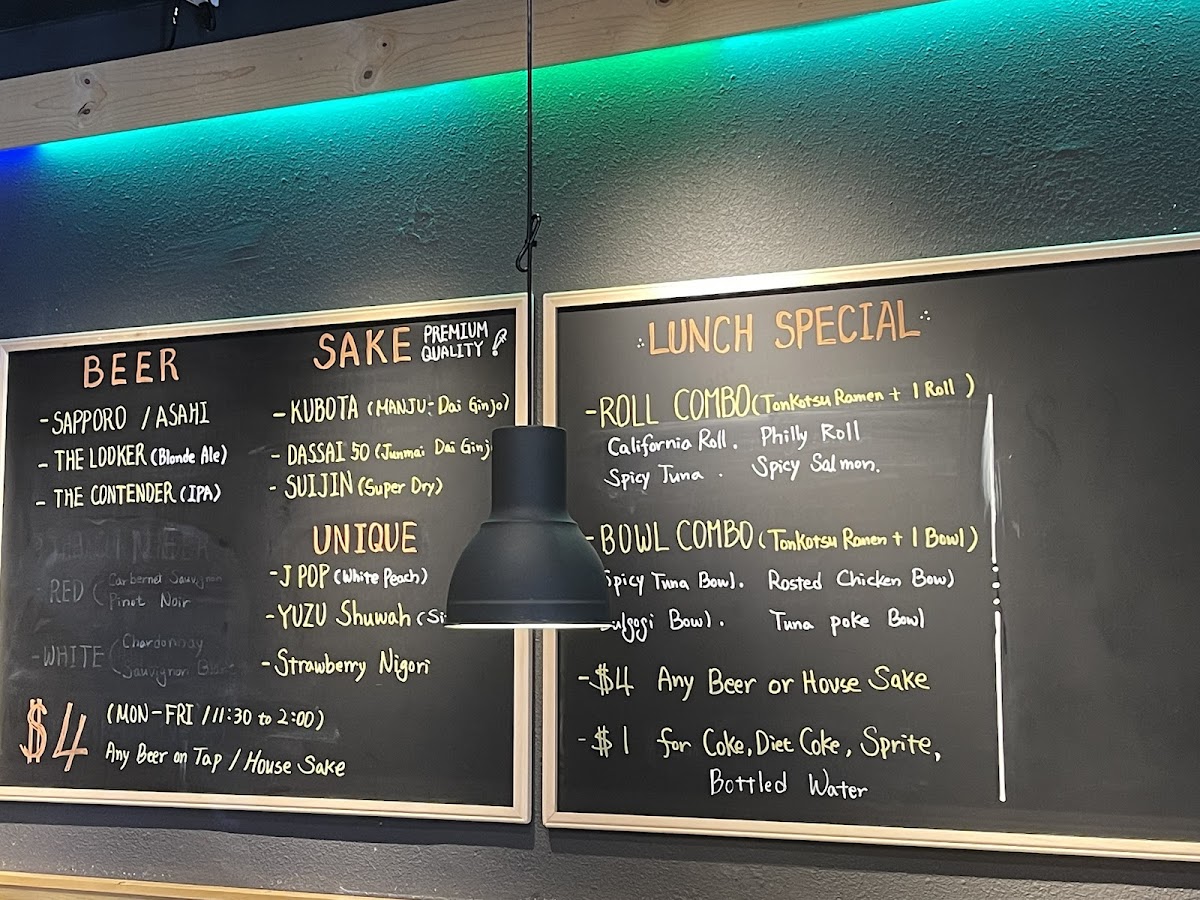 BEER
- SAPPORO / ASAHI
- THE LOOKER (Blonde Ale)
- THE CONTENDER (IPA)
- RED ( Carbernet Sauvignon
Pinot Noir
- WHITE ( Chardonnay
Sauvignon
$4 (MON-FRI / 11:30 to 2:00)
Any Beer on Tap / House Sake
SAKE PREMIUM QUALITY
- KUBOTA (MANJU- Dai Ginjo)
- DASSAI 50 (Junmai Dai Ginj
- SUIJIN (Super Dry)
UNIQUE
- J POP (White Peach)
- YUZU Shuwah (
- Strawberry Nigori
LUNCH SPECIAL
- ROLL COMBO (Tonkotsu Ramen + 1 Roll )
California Roll. Philly Roll
Spicy Tuna . Spicy Salmon.
- BOWL COMBO ( Tonkotsu Ramen + 1 Bowl )
Spicy Tuna Bowl. Rosted Chicken Bowl
Bulgogi Bowl. Tuna poke Bowl
- $4 Any Beer or House Sake
- $1 for Coke, Diet Coke, Sprite,
Bottled Water